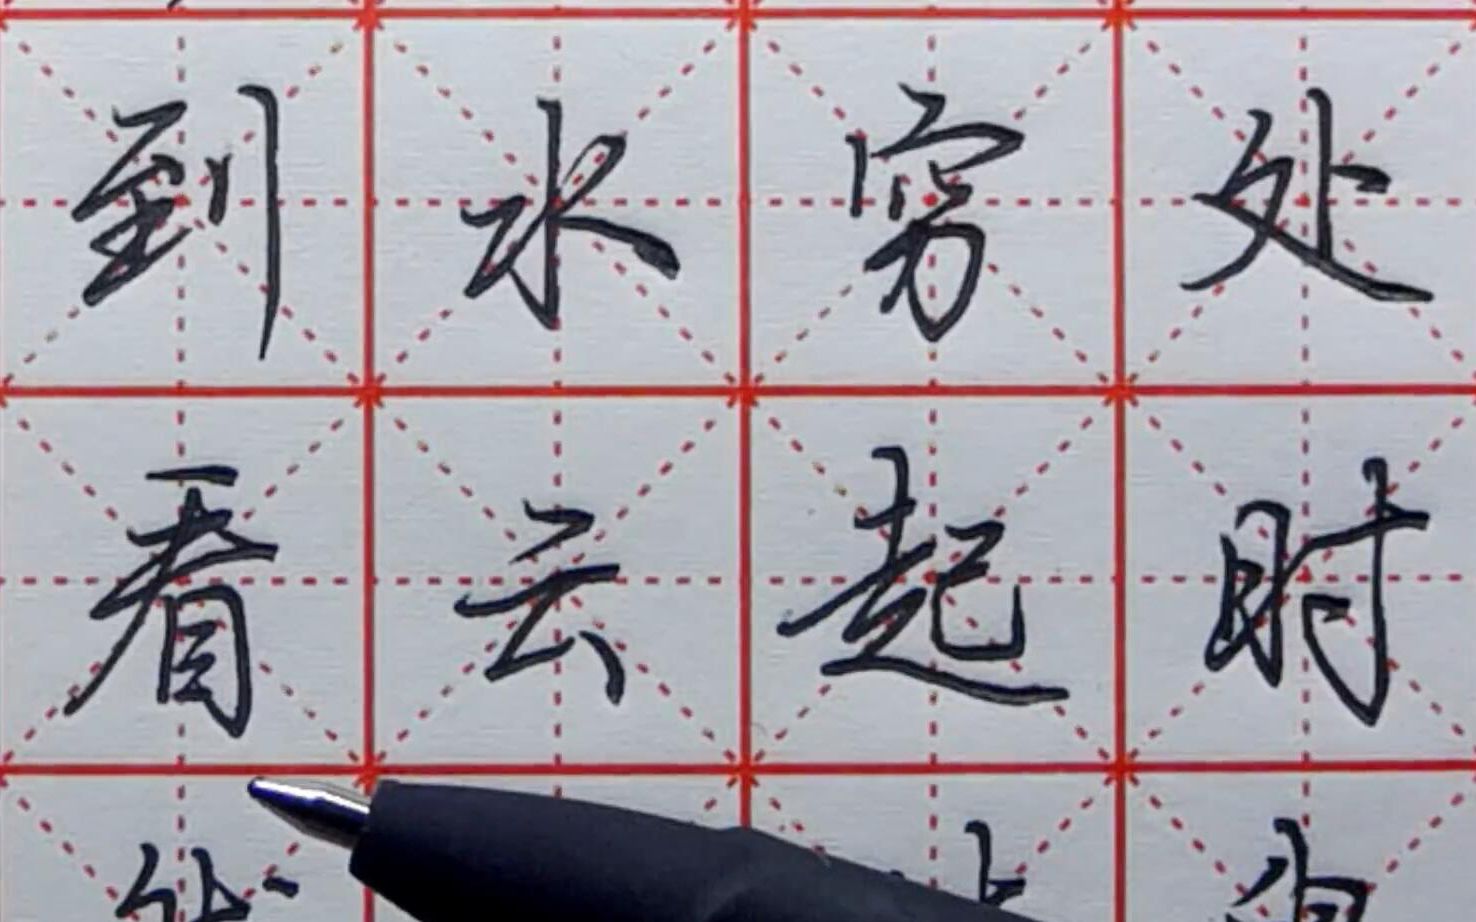 到水穷处
看云起时